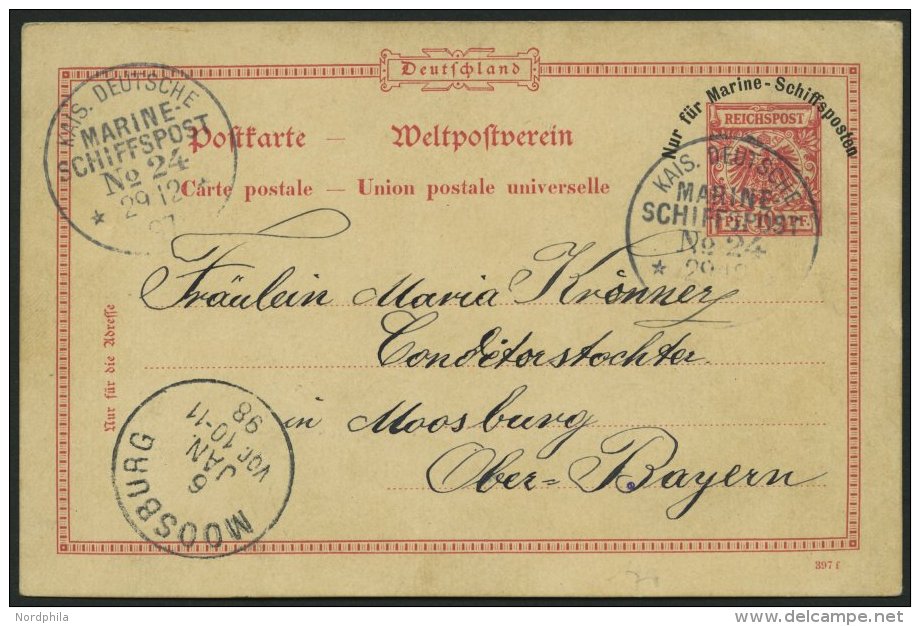 Deutschland
Postkarte – Weltpostverein
Carte postale – Union postale universelle
Nur für Marine-Schiffsposten
REICHSPOST
KAIS. DEUTSCHE
MARINE-
SCHIFFSPOST
No 24
29 12
97
KAIS. DEUTSCHE
MARINE-
SCHIFFSPOST
No 24
29 12
Fräulein Maria Krönner
Conditorstochter
in Moosburg
Ober=Bayern
Nur für die Adresse
MOOSBURG
6
JAN.
Vor. 10-11
98
397 f
Nordphila
delcampe.net